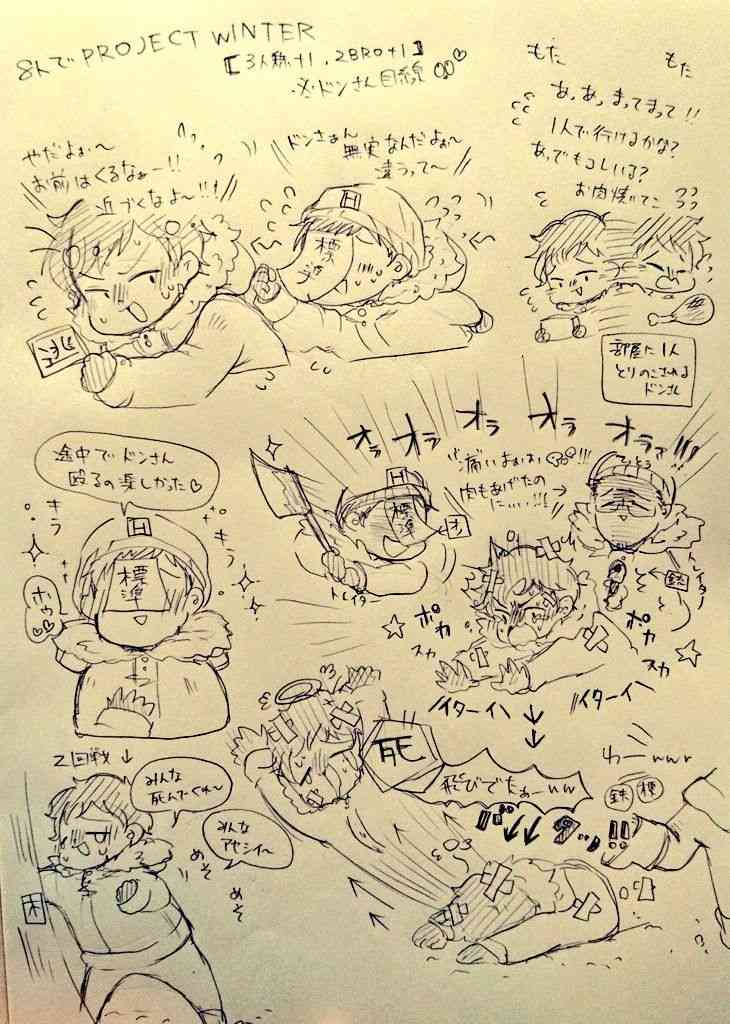 8人でPROJECT WINTER
【3人称+1, 2BRO+1】
※ドンさん目線
やだよぉ〜
お前はくるなぁー!!
近づくなよ〜!!!
ドンさぁん
無実なんだよぉ〜
違うって〜
もた
もた
あっあっまってまって!!
1人で行けるかな?
あっでもコレいる?
お肉焼いてこ
H
標準
部屋に1人
とりのこされる
ドンさん
オラ
オラ
オラ
オラ
オラァ!!!
途中でドンさん
殴るの楽しかった♡
キラ
キラ
H
標準
ホゥ
痛い
肉もあげたの
にぃ…!!!
H
標準
オレ
トレイター
てつとう
トレイター
鉄
そ
そ
ポカ
スカ
ポカ
スカ
イターイ
イターイ
死
飛びでたぁーww
わーwwr
鉄
標
2回戦↓
みんな
死んだくね〜
みんな
アヤシイ〜
めそ
めそ